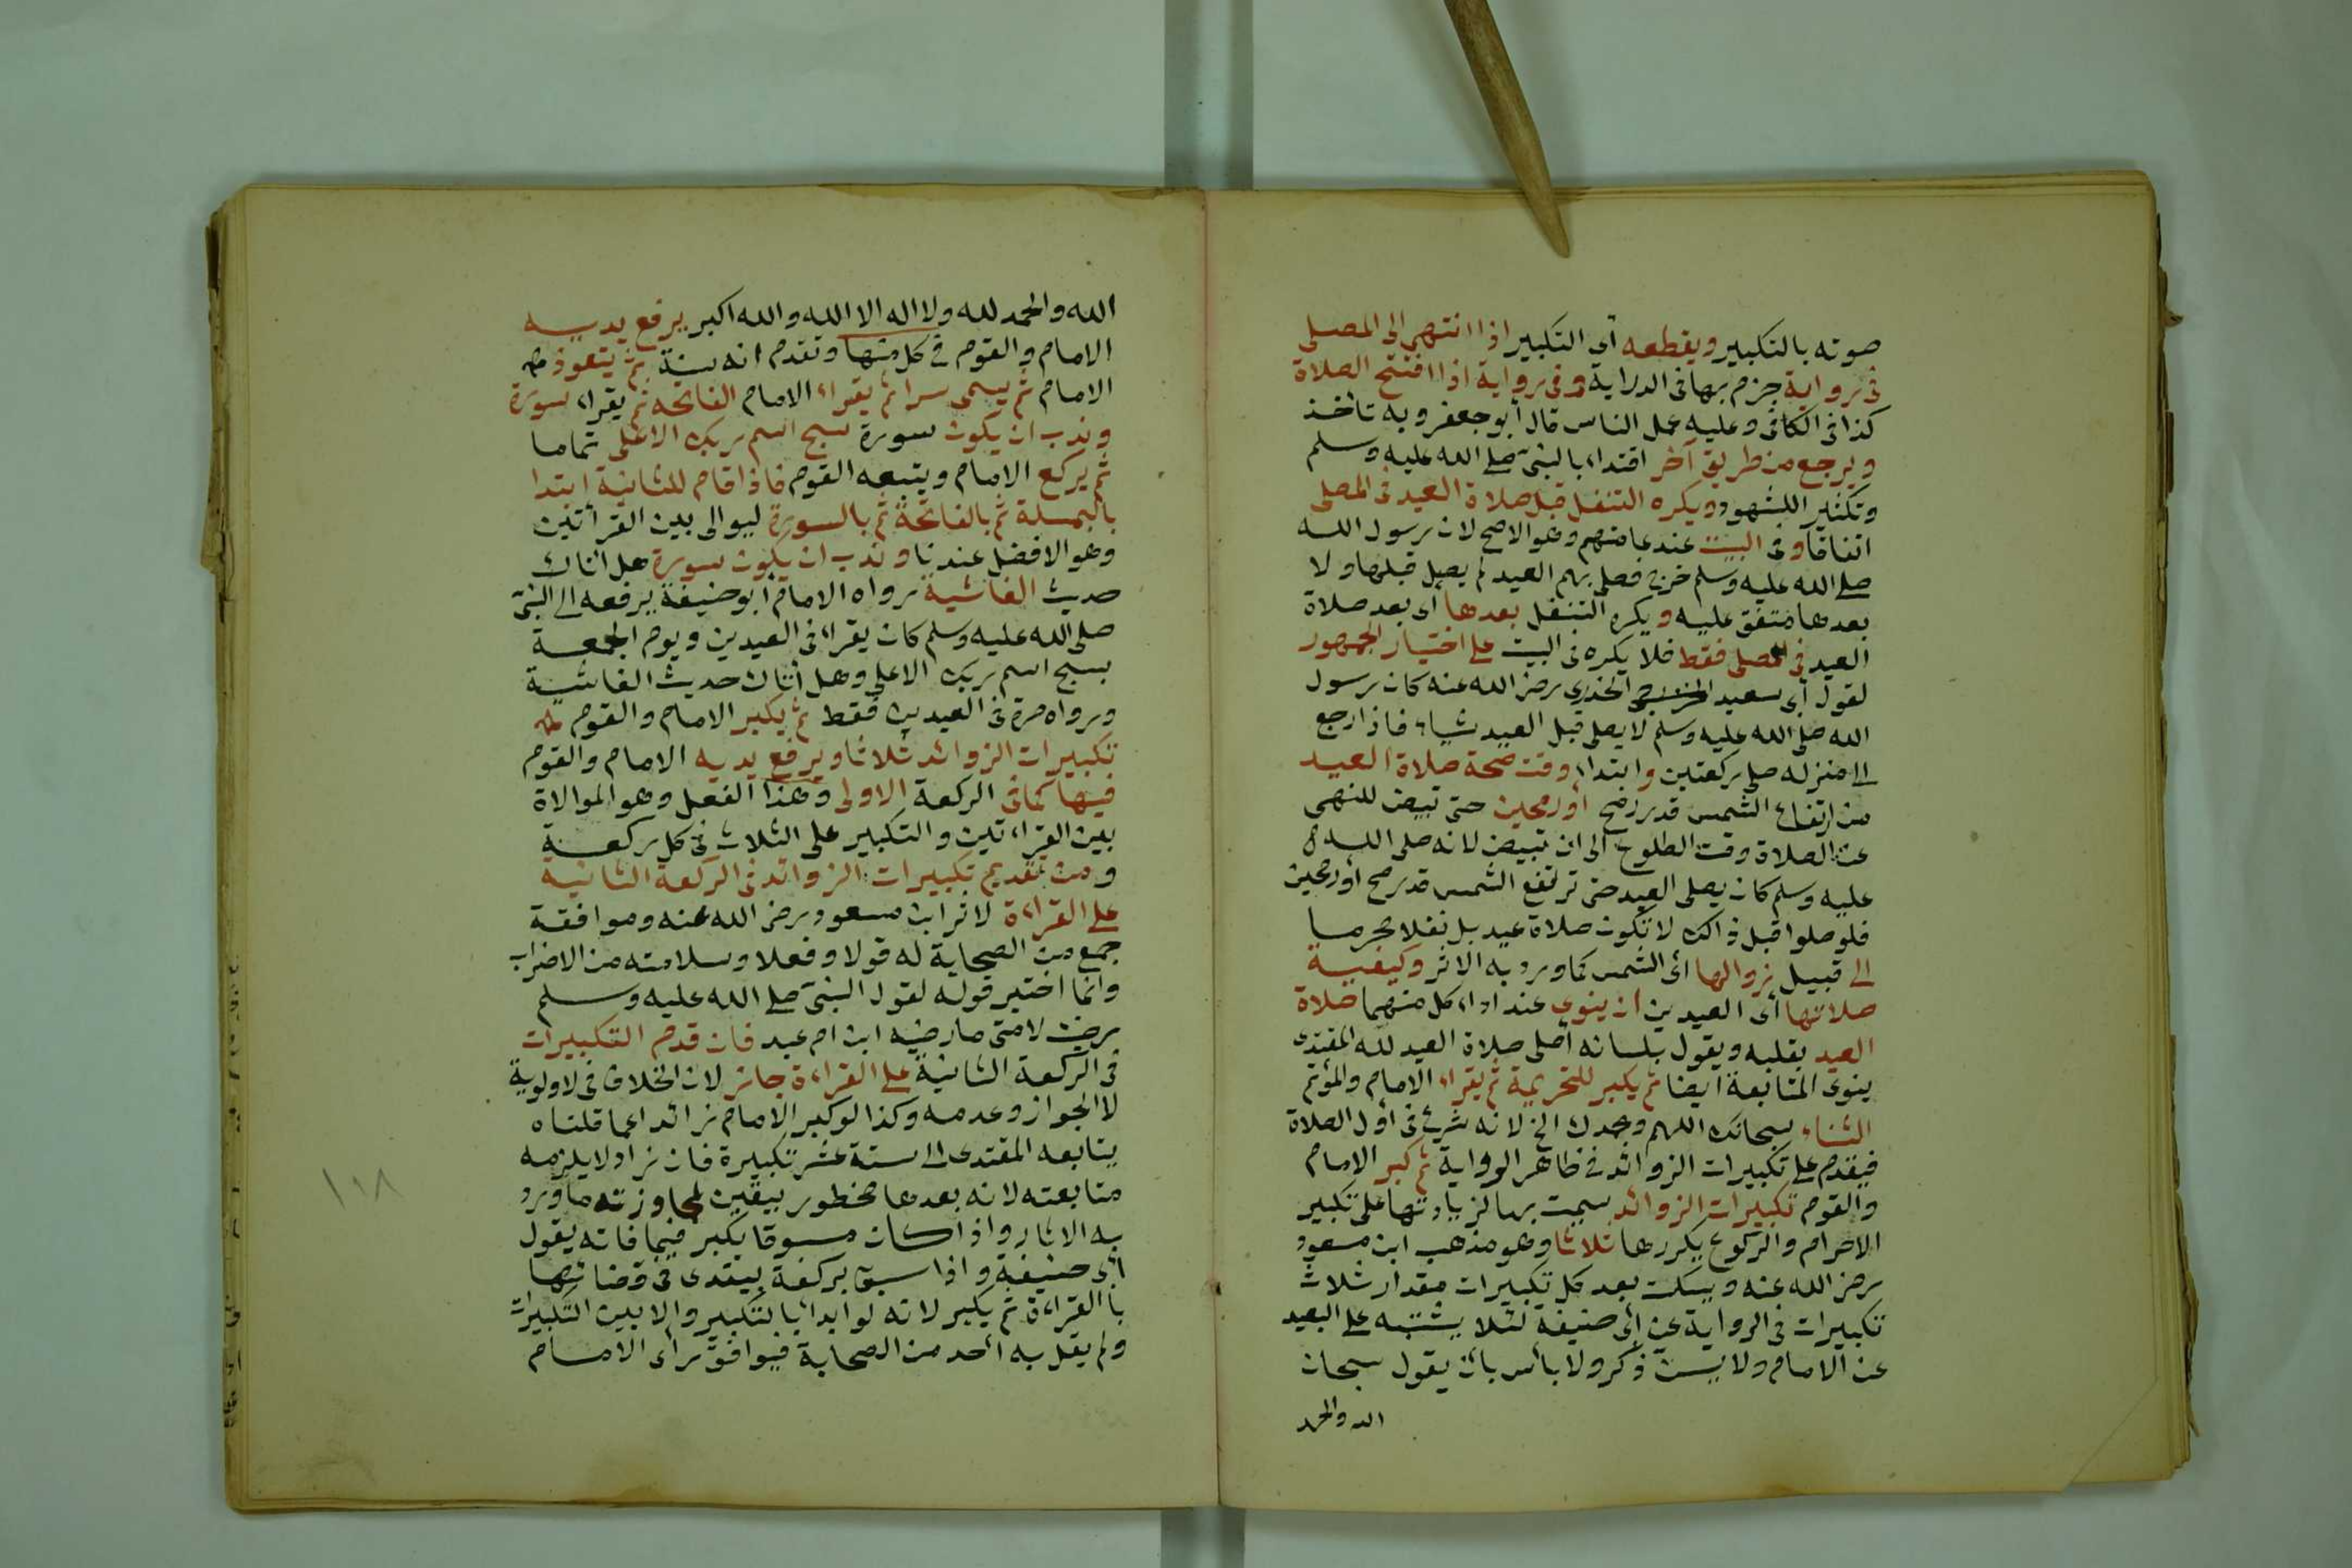 صوته بالتكبير ويقطعه أى التكبير اذا انتهى الى المصلى
فى رواية جزم بها فى الدراية وفى رواية اذا افتتح الصلاة
كذا فى الكافى وعليه عمل الناس قال أبو جعفر وبه تأخذ
ويرجع من طريق آخر اقتداء بالنبى صلى الله عليه وسلم
وتكثير للشهود ويكره التنفل قبل صلاة العيد فى المصلى
اتفاقا وفى البيت عند عامتهم وهو الاصح لان رسول الله
صلى الله عليه وسلم خرج فصلى بهم العيد لم يصل قبلها ولا
بعدها متفق عليه ويكره التنفل بعدها أى بعد صلاة
العيد فى المصلى فقط فلا يكره فى البيت على اختيار الجمهور
لقول أبى سعيد الخدرى رضى الله عنه كان رسول
الله صلى الله عليه وسلم لا يصلى قبل العيد شياء فاذا رجع
الى منزله صلى ركعتين وابتداء وقت صحة صلاة العيد
من ارتفاع الشمس قدر رمح أو رمحين حتى تبيض للنهى
عن الصلاة وقت الطلوع الى ان تبيض لانه صلى الله
عليه وسلم كان يصلى العيد حتى ترتفع الشمس قدر رمح أو رمحين
فلو صلوا قبل ذالك لا تكون صلاة عيد بل نفلا محرما
الى قبيل زوالها أى الشمس كما ورد به الاثر وكيفية
صلاتها أى العيدين ان ينوى عند اداء كل منهما صلاة
العيد بقلبه ويقول بلسانه أصلى صلاة العيد لله المقتدى
ينوى المتابعة ايضا ثم يكبر للتحريمة ثم يقراء الامام والمؤتم
الثناء سبحانك اللهم وبحمدك الخ لانه شرع فى أول الصلاة
فيقدم على تكبيرات الزوائد فى ظاهر الرواية ثم كبر الامام
والقوم تكبيرات الزوائد سميت بها لزيادتها على تكبير
الاحرام والركوع يكررها ثلاثا وهو مذهب ابن مسعود
رضى الله عنه ويسكت بعد كل تكبيرات مقدار ثلاث
تكبيرات فى الرواية عن أبى حنيفة لئلا يشتبه على البعيد
عن الامام ولا يسن ذكر ولا بأس بان يقول سبحان
الله والحمد
الله والحمد لله ولا اله الا الله والله اكبر يرفع يديه
الامام والقوم فى كل منها وتقدم انه سنة ثم يتعوذ
الامام ثم يسمى سرا ثم يقراء الامام الفاتحه ثم يقراء سورة
وندب ان يكون سورة سبح اسم ربك الاعلى تماما
ثم يركع الامام ويتبعه القوم فاذا قام للثانية ابتدا
بالبسملة ثم بالفاتحة ثم بالسورة ليوالى بين القرأتين
وهو الافضل عندنا وندب ان يكون سورة هل أتاك
حديث الغاشية رواه الامام أبو حنيفة يرفعه الى النبى
صلى الله عليه وسلم كان يقراء فى العيدين ويوم الجمعة
بسبح اسم ربك الاعلى وهل أتاك حديث الغاشية
ورواه مرة فى العيدين فقط ثم يكبر الامام والقوم
تكبيرات الزوائد ثلاثا ويرفع يديه الامام والقوم
فيها كما فى الركعة الاولى وهذا الفعل وهو الموالاة
بين القراءتين والتكبير على الثلاث فى كل ركعة
ومن تقديم تكبيرات الزوائد فى الركعة الثانية
على القراءة لاثر ابن مسعود رضى الله عنه وموافقة
جمع من الصحابة له قولا وفعلا وسلامته من الاضراب
وانما اختير قوله لقول النبى صلى الله عليه وسلم
رضيت لامتى ما رضيه ابن ام عبد فان قدم التكبيرات
فى الركعة الثانية على القراءة جائز لان الخلاف فى لاولوية
لا الجواز وعدمه وكذا لو كبر الامام زائد اعما قلناه
يتابعه المقتدى الى ستة عشر تكبيرة فان زاد لا يلزمه
متابعته لانه بعدها محظور بيقين لمجاوزته ما ورد
به الاثار واذا كان مسبوقا يكبر فيما فاته بقول
أبى حنيفة واذا سبق بركعة يبتدى فى قضائها
بالقراءة ثم يكبر لانه لو ابدا بالتكبير والا بين التكبيرات
ولم يقل به أحد من الصحابة فيوافق رأى الامام
١٠٨